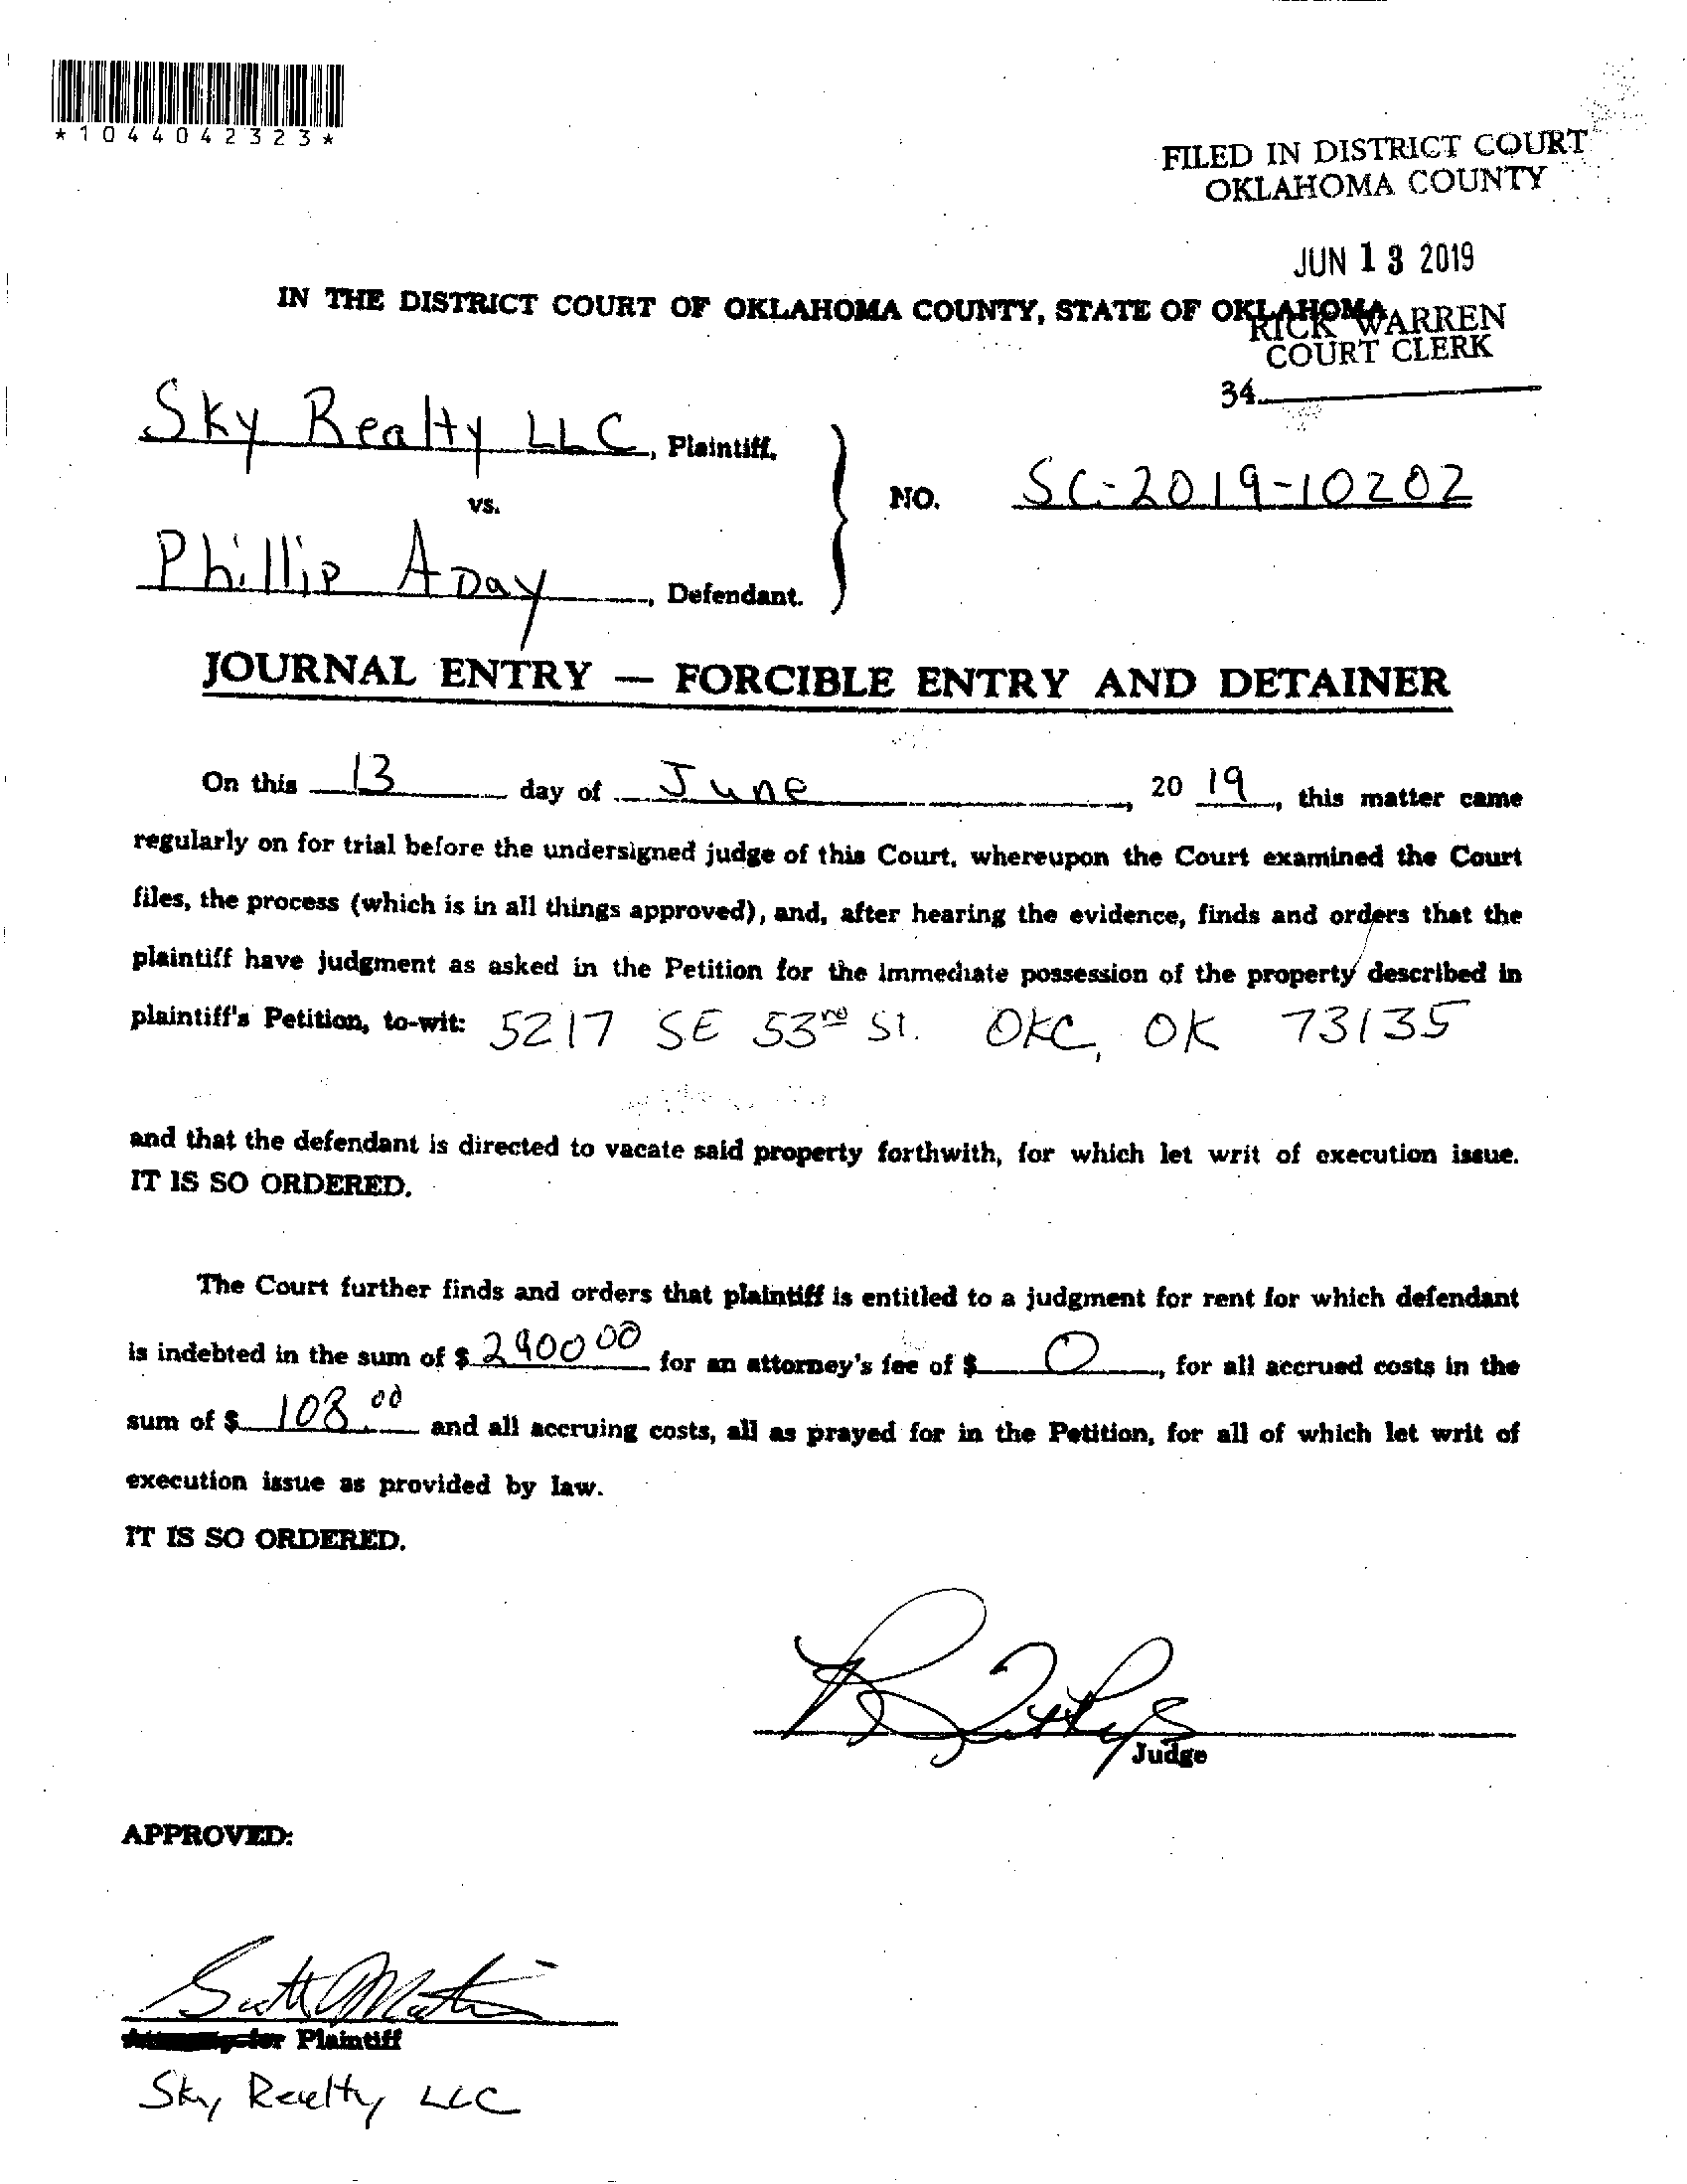 *1044042323*
FILED IN DISTRICT COURT
OKLAHOMA COUNTY
JUN 13 2019
IN THE DISTRICT COURT OF OKLAHOMA COUNTY, STATE OF OKLAHOMA
RICK WARREN
COURT CLERK
34
Sky Realty LLC, Plaintiff,
vs.
NO. SC-2019-10202
Phillip Aday, Defendant.
JOURNAL ENTRY — FORCIBLE ENTRY AND DETAINER
On this 13 day of June, 20 19, this matter came
regularly on for trial before the undersigned judge of this Court, whereupon the Court examined the Court
files, the process (which is in all things approved), and, after hearing the evidence, finds and orders that the
plaintiff have judgment as asked in the Petition for the immediate possession of the property described in
plaintiff's Petition, to-wit: 5217 SE 53rd St. OKC, OK 73135
and that the defendant is directed to vacate said property forthwith, for which let writ of execution issue.
IT IS SO ORDERED.
The Court further finds and orders that plaintiff is entitled to a judgment for rent for which defendant
is indebted in the sum of $ for an attorney's fee of $ 0, for all accrued costs in the
sum of $ 108.00 and all accruing costs, all as prayed for in the Petition, for all of which let writ of
execution issue as provided by law.
IT IS SO ORDERED.
Judge
APPROVED:
for Plaintiff
Sky Realty LLC